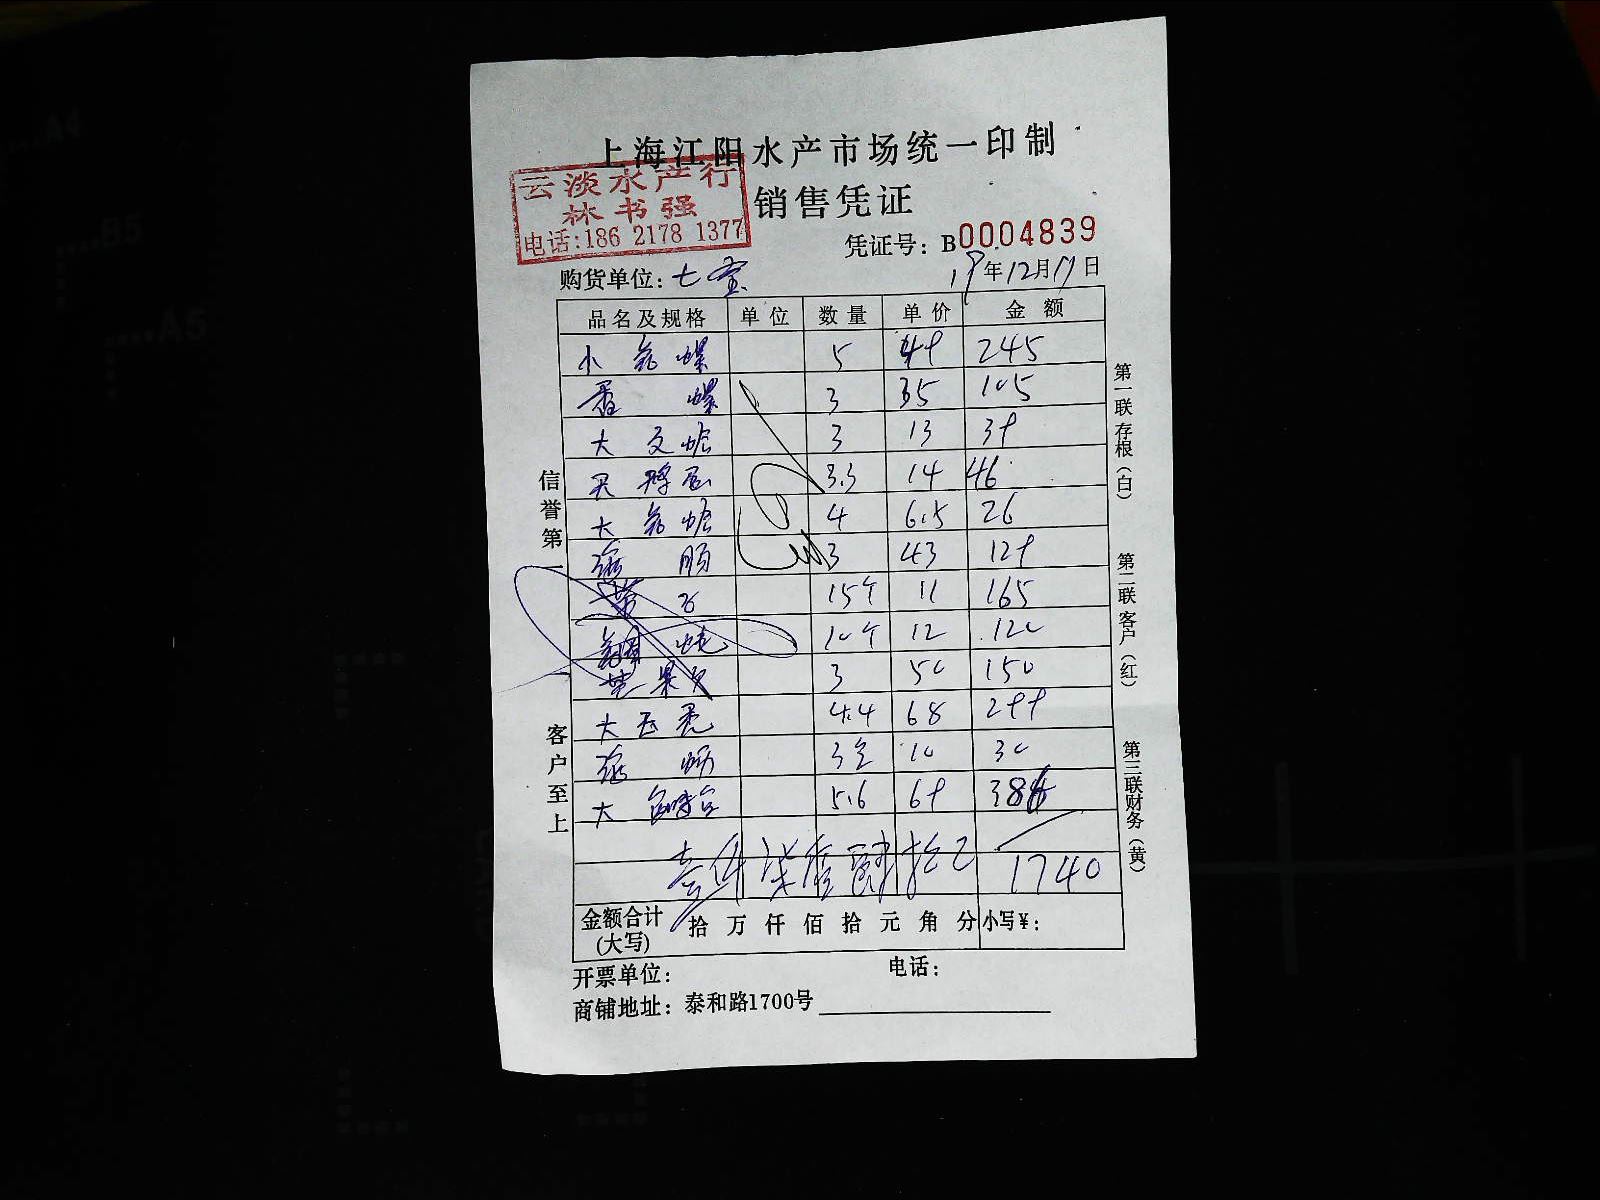 上海江阳水产市场统一印制
销售凭证
云淡水产行
林书强
电话:186 2178 1377
凭证号: B0004839
购货单位: 七宝 19年12月17日
品名及规格 单位 数量 单价 金额
小 螺 5 49 245
香螺 3 35 105
大文蛤 3 13 39
3.3 14 46
大 蛤 4 6.5 26
3 43 129
15个 11 165
10个 12 120
3 50 150
大 4.4 68 299
3 10 30
大 5.6 69 386
壹仟柒佰肆拾元 1740
金额合计(大写) 拾 万 仟 佰 拾 元 角 分 小写¥:
开票单位: 电话:
商铺地址: 泰和路1700号
信誉第一
客户至上
第一联存根(白)
第二联客户(红)
第三联财务(黄)